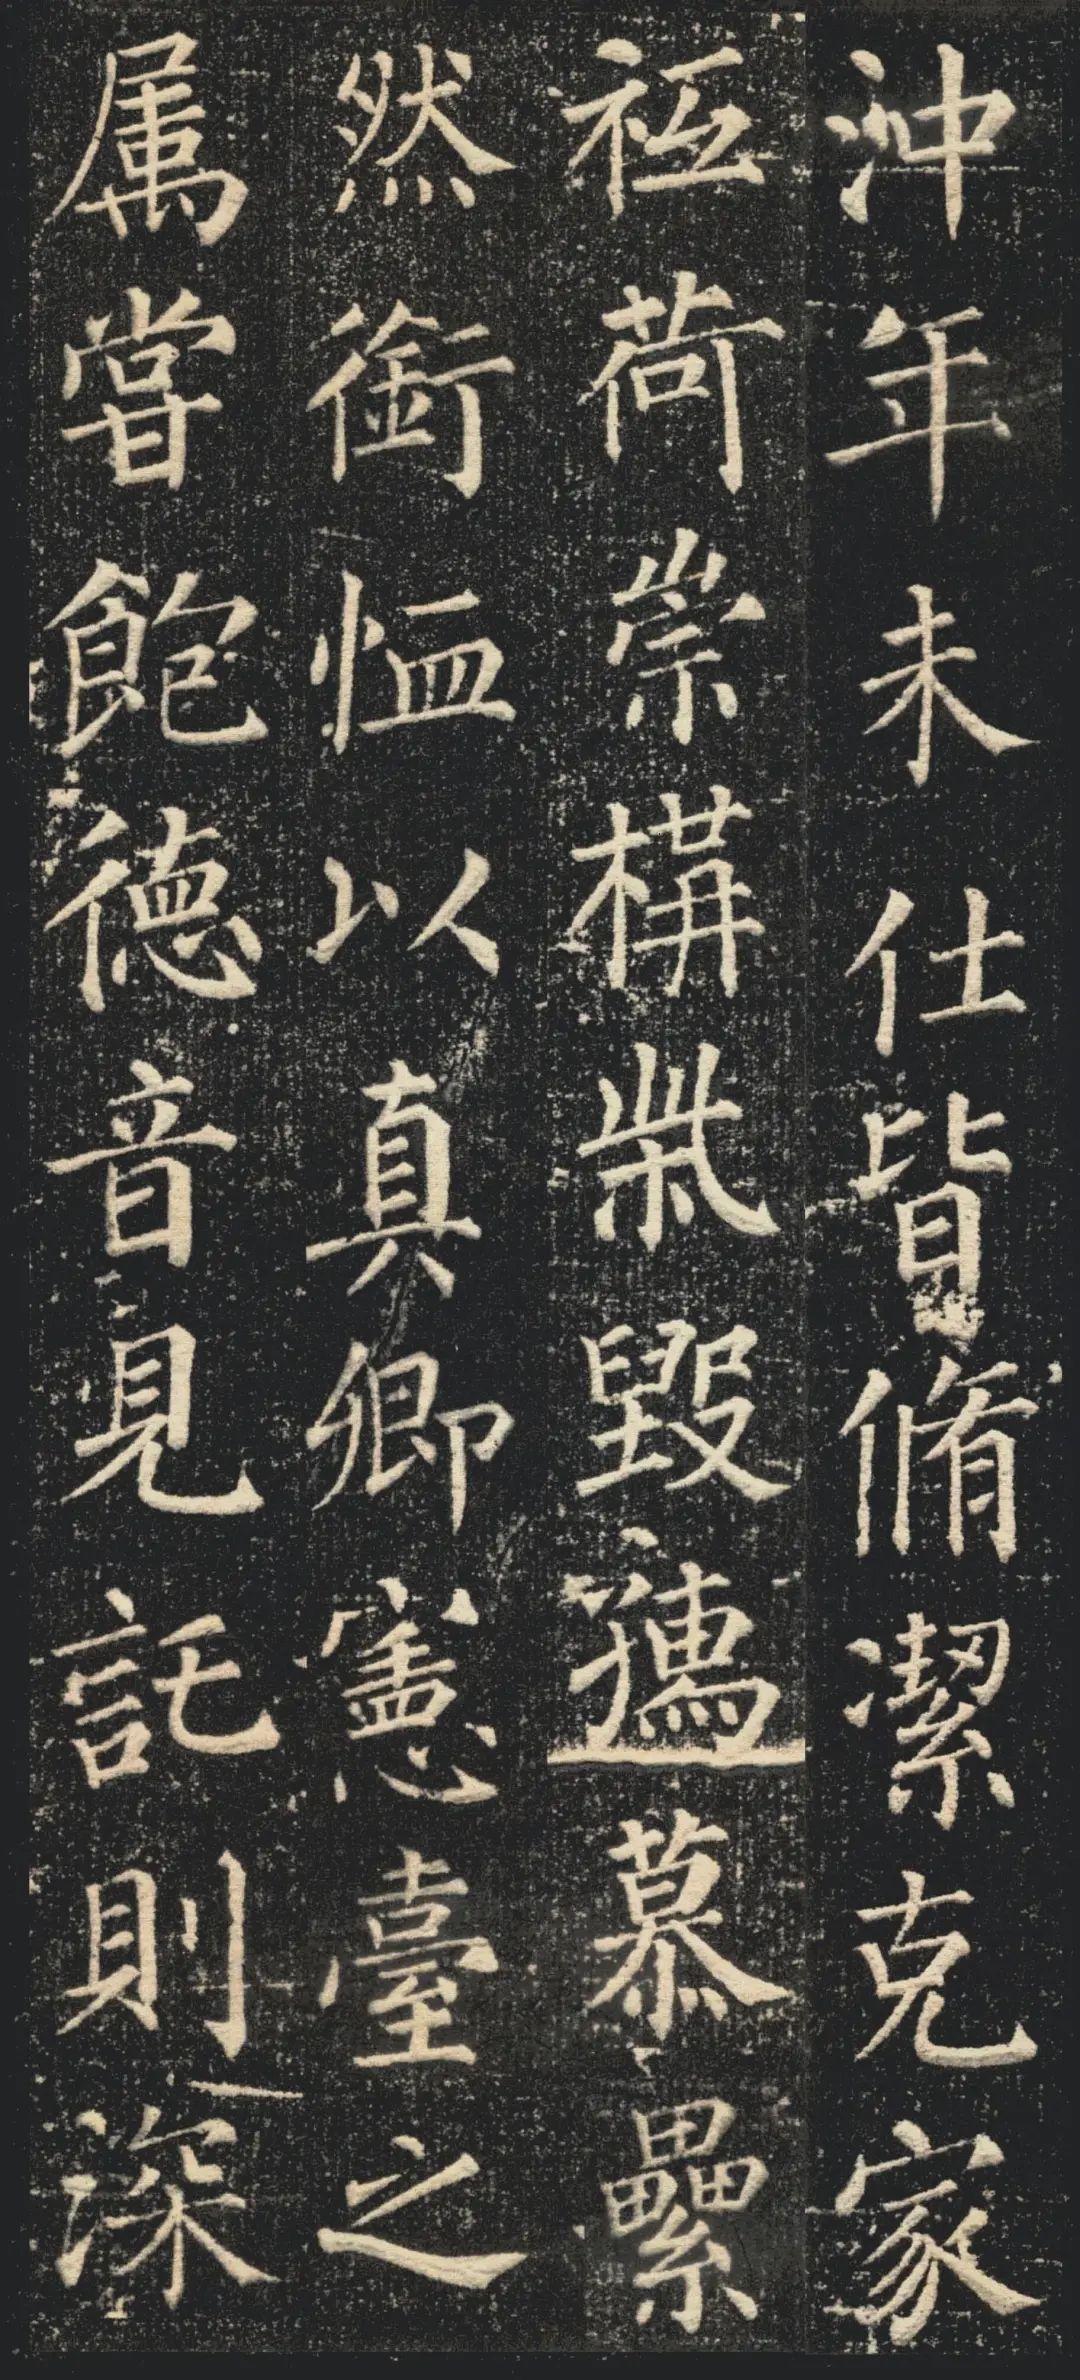 沖年未仕皆脩潔克家
祗荷崇構柴毀孺慕纍
然銜恤以真卿憲臺之
属嘗飽德音見託則深